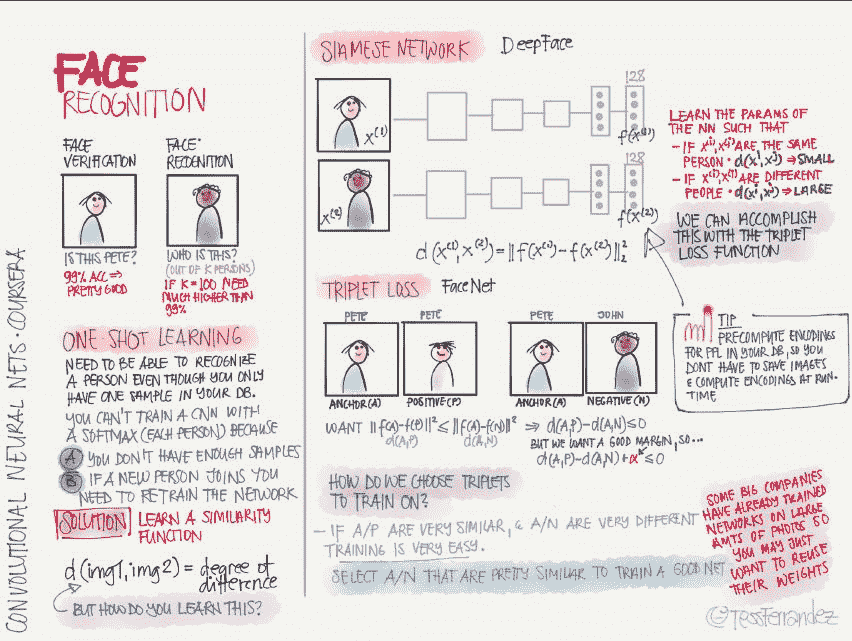 CONVOLUTIONAL NEURAL NETS · COURSERA
FACE
RECOGNITION
FACE
VERIFICATION
IS THIS PETE?
99% ACC ⇒
PRETTY GOOD
FACE
WHO IS THIS?
(OUT OF K PERSONS)
IF K = 100 NEED
MUCH HIGHER THAN
99%
ONE SHOT LEARNING
NEED TO BE ABLE TO RECOGNIZE
A PERSON EVEN THOUGH YOU ONLY
HAVE ONE SAMPLE IN YOUR DB.
YOU CAN'T TRAIN A CNN WITH
A SOFTMAX (EACH PERSON) BECAUSE
A YOU DON'T HAVE ENOUGH SAMPLES
B IF A NEW PERSON JOINS YOU
NEED TO RETRAIN THE NETWORK
SOLUTION LEARN A SIMILARITY
FUNCTION
d(img1, img2) = degree of
difference
BUT HOW DO YOU LEARN THIS?
SIAMESE NETWORK DeepFace
128
x(1)
f(x(1))
128
x(2)
f(x(2))
d(x(1), x(2)) = ||f(x(1)) - f(x(2))||²₂
LEARN THE PARAMS OF
THE NN SUCH THAT
- IF x(i), x(j) ARE THE SAME
PERSON · d(xi, xj) ⇒ SMALL
- IF x(i), x(j) ARE DIFFERENT
PEOPLE · d(xi, xj) ⇒ LARGE
WE CAN ACCOMPLISH
THIS WITH THE TRIPLET
LOSS FUNCTION
TRIPLET LOSS FaceNet
PETE PETE PETE JOHN
ANCHOR(A) POSITIVE(P) ANCHOR(A) NEGATIVE(N)
WANT ||f(A)-f(P)||² ≤ ||f(A)-f(N)||² ⇒ d(A,P)-d(A,N)≤0
d(A,P) d(A,N)
BUT WE WANT A GOOD MARGIN, SO...
d(A,P)-d(A,N)+α ≤0
TIP
PRECOMPUTE ENCODINGS
FOR PPL IN YOUR DB, SO YOU
DONT HAVE TO SAVE IMAGES
& COMPUTE ENCODINGS AT RUN-
TIME
HOW DO WE CHOOSE TRIPLETS
TO TRAIN ON?
- IF A/P ARE VERY SIMILAR, & A/N ARE VERY DIFFERENT
TRAINING IS VERY EASY.
SELECT A/N THAT ARE PRETTY SIMILAR TO TRAIN A GOOD NET
SOME BIG COMPANIES
HAVE ALREADY TRAINED
NETWORKS ON LARGE
AMTS OF PHOTOS SO
YOU MAY JUST
WANT TO REUSE
THEIR WEIGHTS
@TessFerrandez